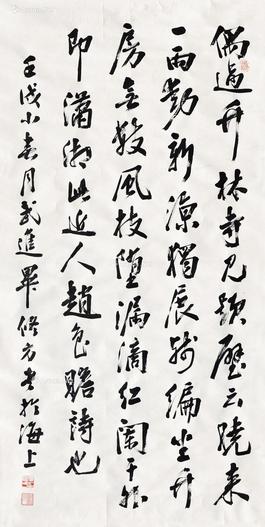 偶過竹林寺見題壁云曉來
一雨動新涼獨展殘編坐竹
房無數風枝墮漏滴紅闌干外
即瀟湘此近人趙詩也
壬戌小春月武進畢脩方書於海上